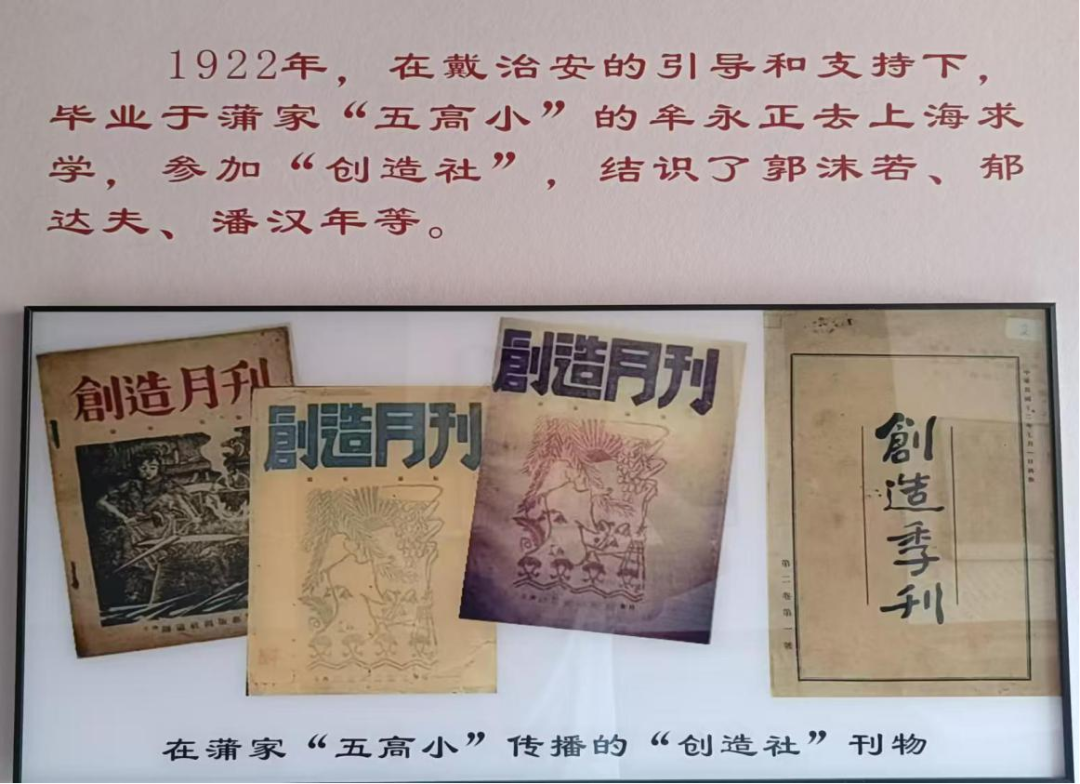 1922年，在戴治安的引导和支持下，
毕业于蒲家“五高小”的牟永正去上海求
学，参加“创造社”，结识了郭沫若、郁
达夫、潘汉年等。
創造月刊
創造月刊
創造月刊
創造季刊
第二卷第一號
在蒲家“五高小”传播的“创造社”刊物